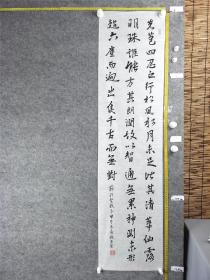 先苞四忍之行松風水月未足比其清華仙露
明珠詎能方其朗潤故以智通無累神測未形
超六塵而迥出隻千古而無對